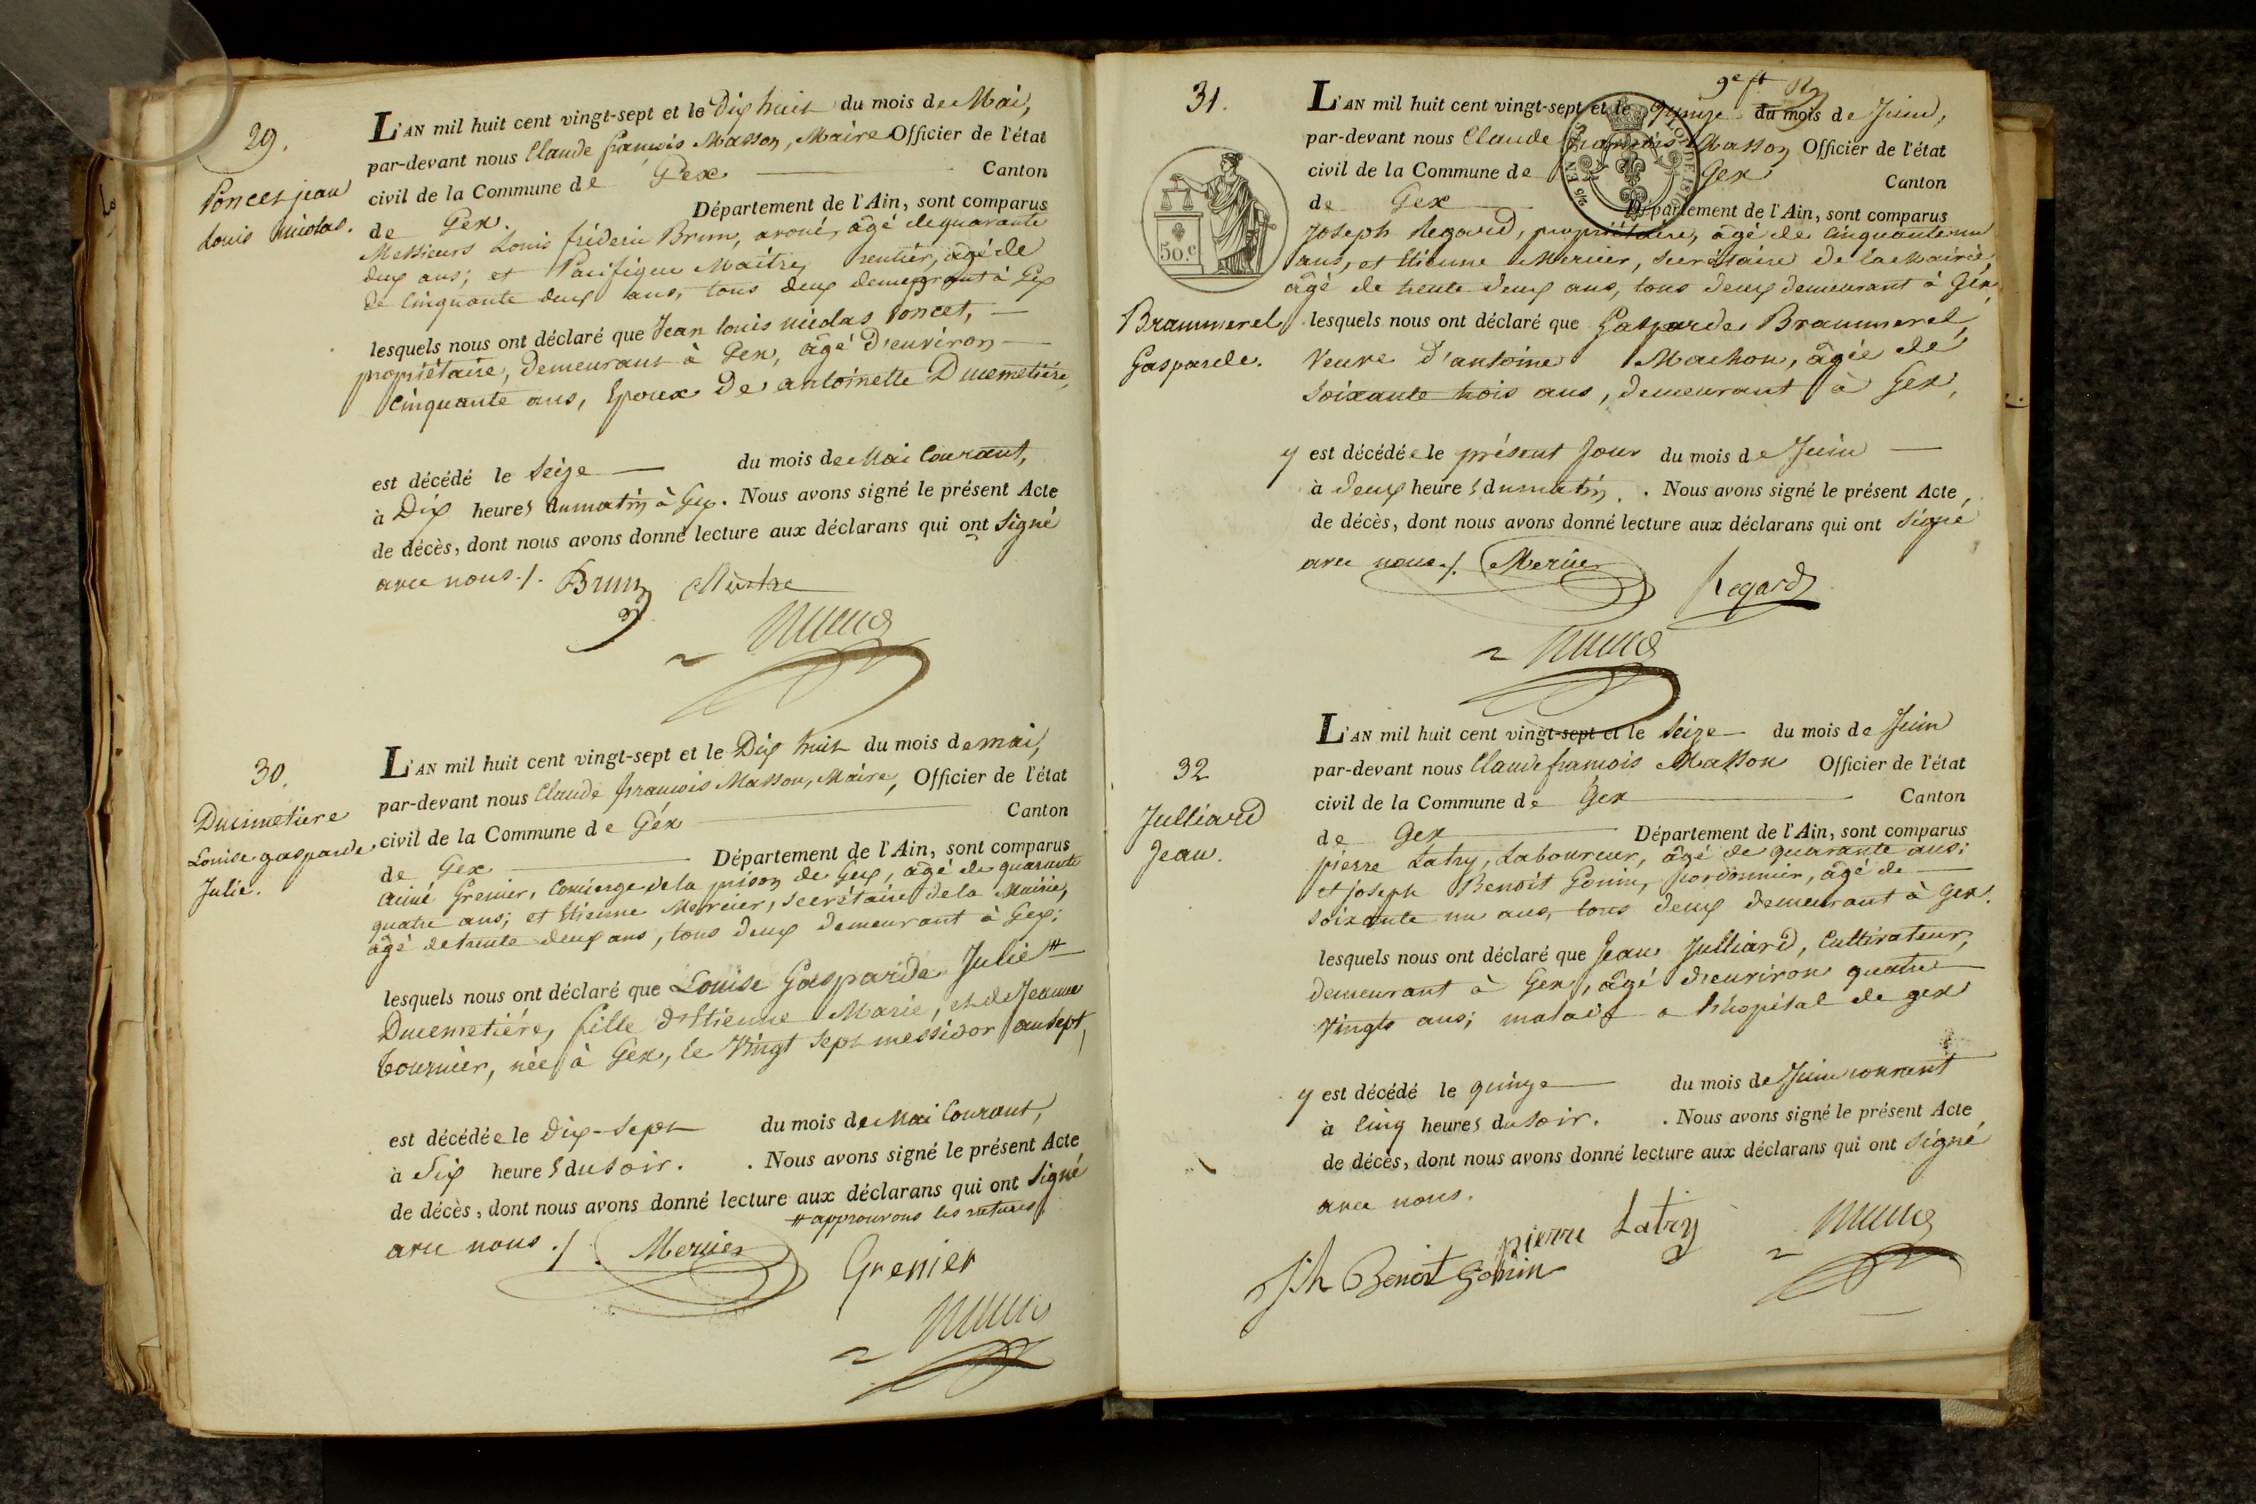 29.
Poncet jean
Louis nicolas.
L'AN mil huit cent vingt-sept et le Dix huit du mois de Mai,
par-devant nous Claude françois Masson, Maire Officier de l'état
civil de la Commune de Gex Canton
de Gex. Département de l'Ain, sont comparus
Messieurs Louis fréderic Brun, avoué, âgé de quarante
deux ans; et Pacifique Maitre, rentier, âgé de
de Cinquante deux ans, tous deux demeurant à Gex
lesquels nous ont déclaré que Jean Louis nicolas Poncet,
propriétaire, demeurant à Gex, âgé d'environ
Cinquante ans, Epoux de antoinette Ducimetière,
est décédé le Seize du mois de Mai Courant,
à Dix heures du matin à Gex. Nous avons signé le présent Acte
de décès, dont nous avons donné lecture aux déclarans qui ont Signé
avec nous ./. Brun Maitre
30.
Ducimetiere
Louise gasparde
Julie.
L'AN mil huit cent vingt-sept et le Dix huit du mois de mai,
par-devant nous Claude françois Masson, Maire, Officier de l'état
civil de la Commune de Gex Canton
de Gex Département de l'Ain, sont comparus
aimé Grenier, Concierge de la prison de Gex, âgé de quarante
quatre ans; et Etienne Mercier, secrétaire de la Mairie,
âgé de trente deux ans, tous deux demeurant à Gex;
lesquels nous ont déclaré que Louise Gasparde Julie #
Ducimetiére, fille d'Etienne Marie, et de Jeanne
Tournier, née à Gex, le Vingt Sept messidor an sept,
est décédée le Dix-Sept du mois de Mai Courant,
à Six heures du soir. . Nous avons signé le présent Acte
de décès, dont nous avons donné lecture aux déclarans qui ont Signé
# approuvons les ratures
avec nous ./. Mercier
Grenier
31.
50.c
Brammerel
Gasparde.
L'AN mil huit cent vingt-sept et le quinze du mois de Juin,
par-devant nous Claude françois Masson Officier de l'état
civil de la Commune de Gex Canton
de Gex Département de l'Ain, sont comparus
Joseph Regard, propriétaire, âgé de Cinquante un
ans, et Etienne Mercier, Secrétaire de la Mairie,
âgé de trente deux ans, tous deux demeurant à Gex,
lesquels nous ont déclaré que Gasparde Brammerel,
Veuve d'antoine Machon, âgée de
Soixante trois ans, demeurant à Gex,
y est décédée le présent Jour du mois de Juin
à deux heures du matin. . Nous avons signé le présent Acte,
de décès, dont nous avons donné lecture aux déclarans qui ont Signé
avec nous ./. Mercier
Regard
32
Julliard
Jean.
L'AN mil huit cent vingt-sept et le Seize du mois de Juin
par-devant nous Claude françois Masson Officier de l'état
civil de la Commune de Gex Canton
de Gex Département de l'Ain, sont comparus
pierre Latry, Laboureur, âgé de quarante ans;
et joseph Benoit Gonin, Cordonnier, âgé de
Soixante un ans, tous deux demeurant à Gex.
lesquels nous ont déclaré que Jean Julliard, Cultivateur,
demeurant à Gex, âgé d'environ quatre
Vingts ans; malade a l'hopital de gex
y est décédé le quinze du mois de Juin courant
à Cinq heures du soir. . Nous avons signé le présent Acte
de décès, dont nous avons donné lecture aux déclarans qui ont Signé
avec nous.
pierre Latry
Jh Benoit Gonin